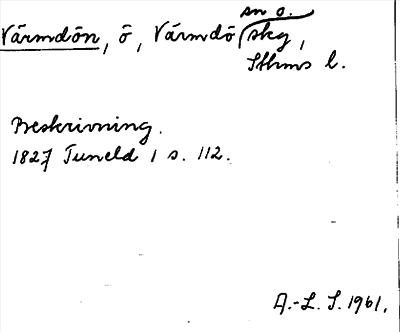 sn o.
Värmdön, ö, Värmdö skg,
Sthms l.
Beskrivning.
1827 Tuneld 1 s. 112.
A.-L. S. 1961.